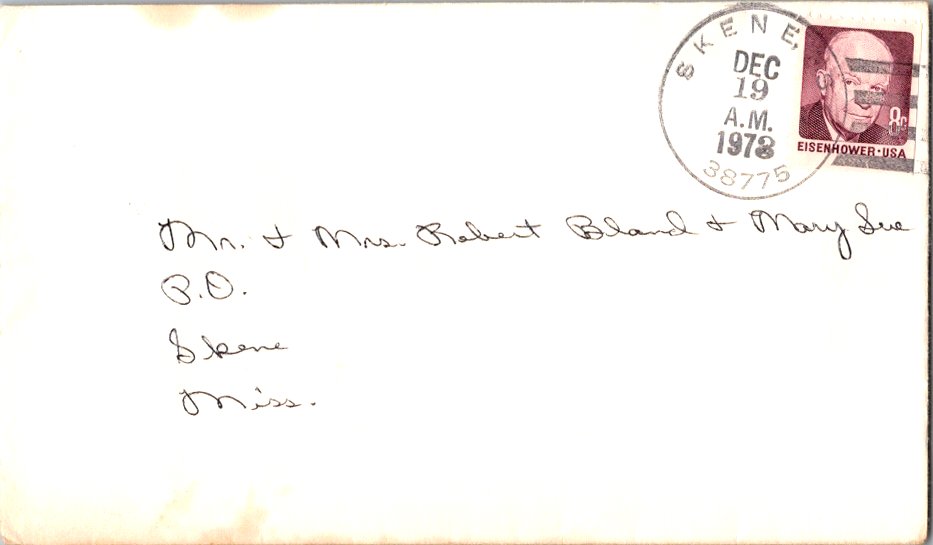 SKENE,
DEC
19
A.M.
1973
38775
8c
EISENHOWER·USA
Mr. & Mrs. Robert Bland & Mary Sue
P.O.
Skene
Miss.